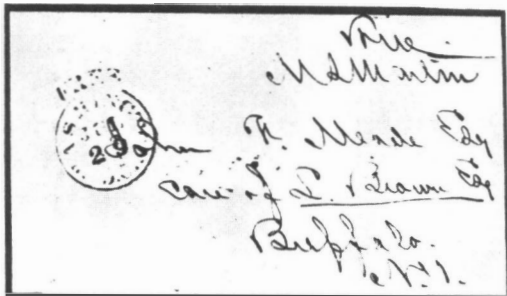 Free
M L Martin
FREE
29
John F. Meade Esq
care of S. Brown Esq
Buffalo.
N.Y.